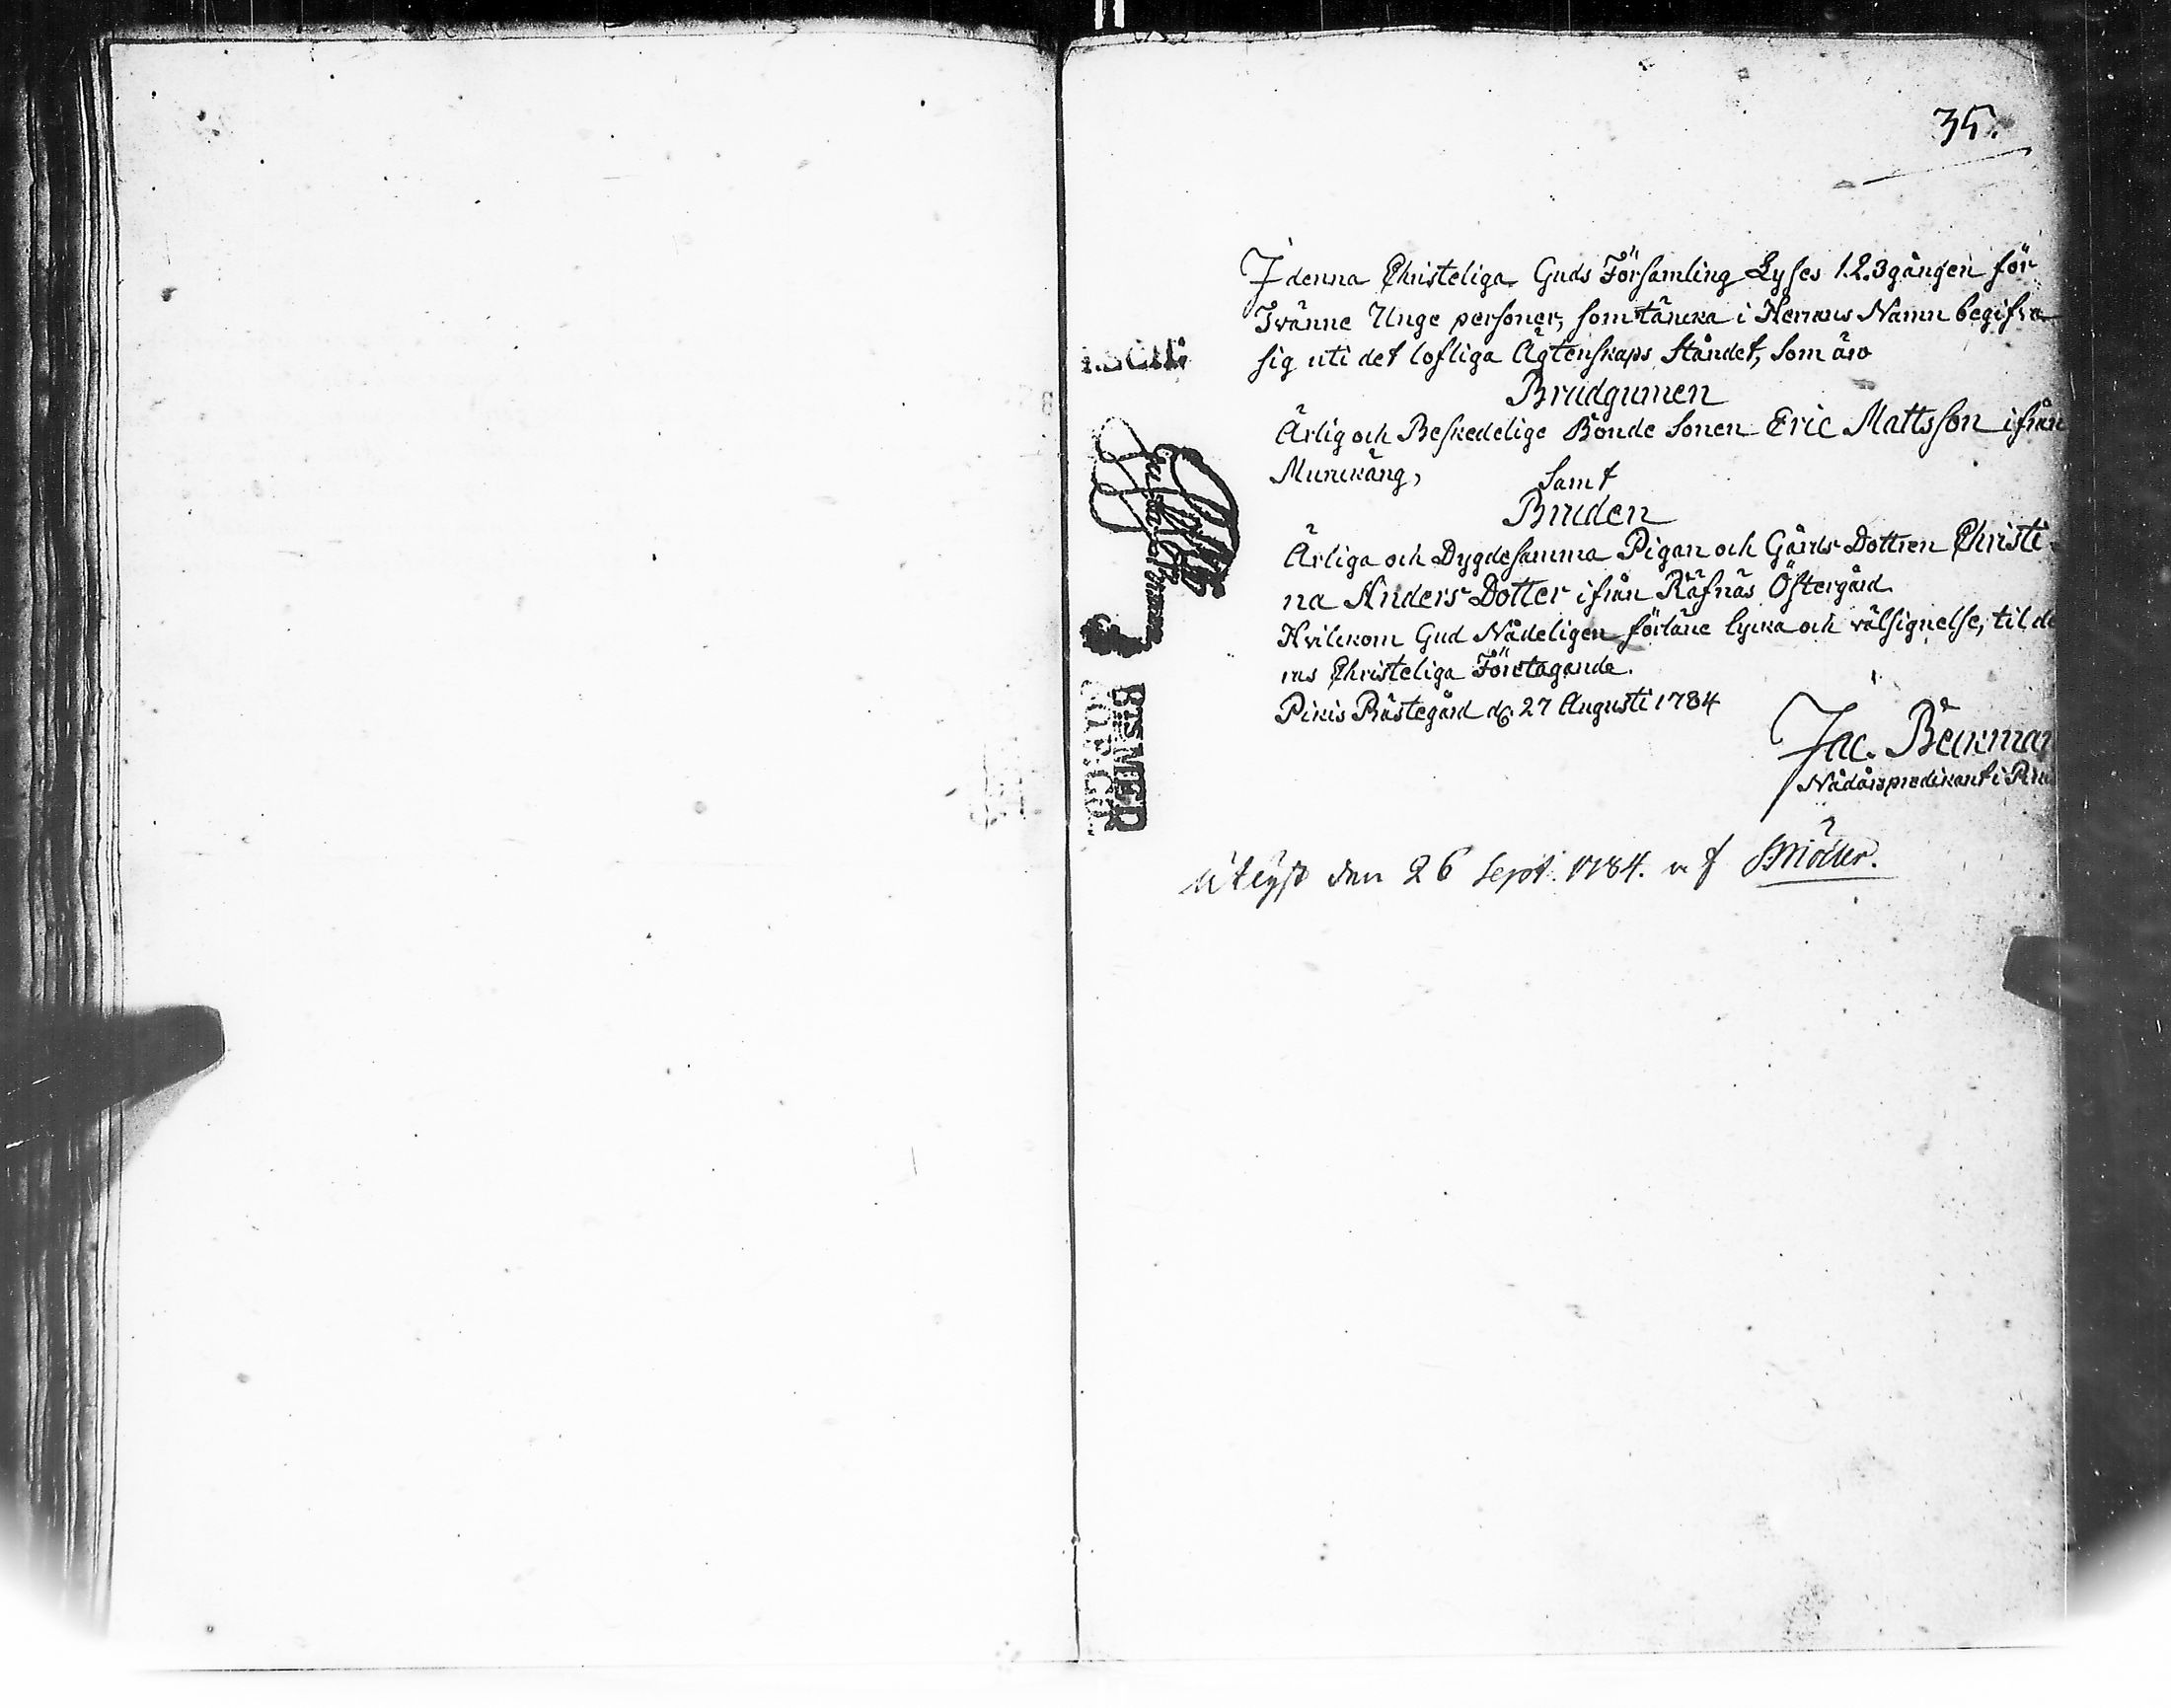 35.
I denna Christeliga Guds Församling Lyses 1.2.3 gången för
Tvänne Unge personer, som täncka i Herrans Namn begifva
sig uti det lofliga Ägtenskaps Ståndet, som äro
Brudgumen
Ärlig och Beskedelige Bonde Sonen Eric Mattsson ifrån
Munckäng,
Samt
Bruden
Ärliga och Dygdesamma Pigan och Gårds Dottren Christi-
na Anders Dotter ifrån Räfnäs Östergård
Hvilckom Gud Nådeligen förläne lycka och välsignelse, til de
ras Christeliga Företagande.
Pikis Prästegård d. 27 Augusti 1784
Jac. Beckman
Nådårspredikant i
Utlyst den 26 Sept. 1784. af